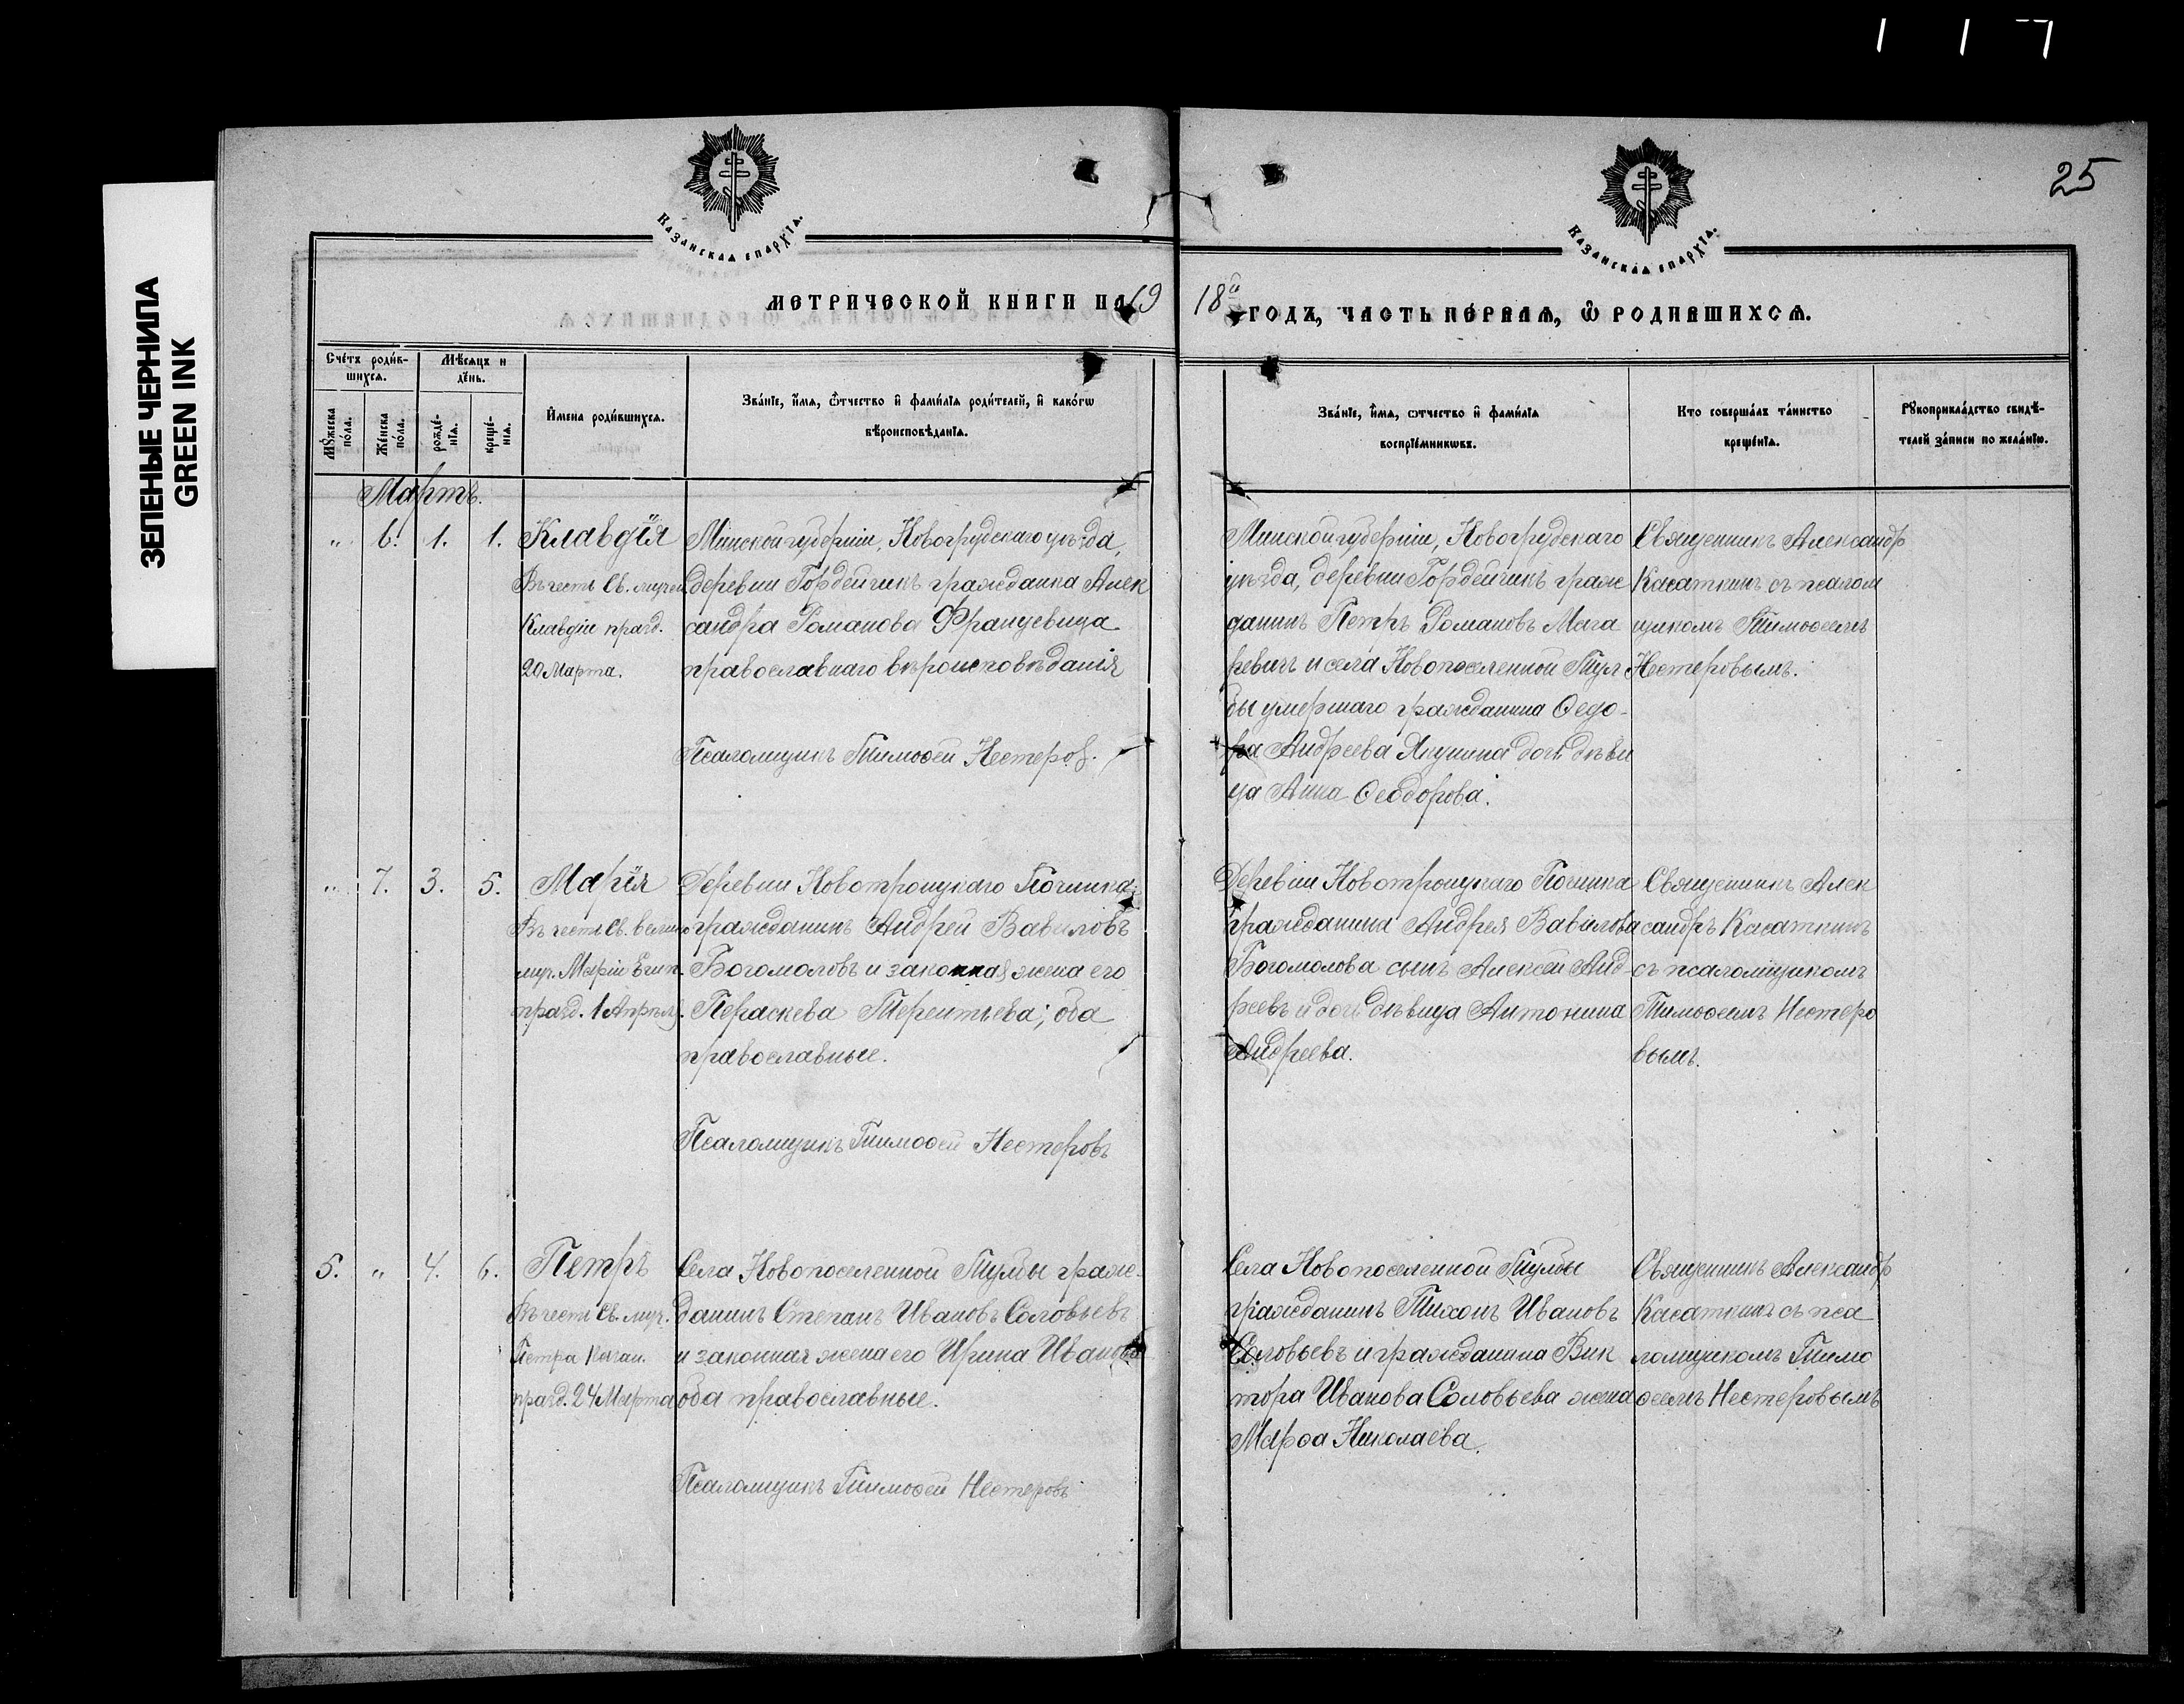 1 1 7
ЗЕЛЕНЫЕ ЧЕРНИЛА
GREEN INK
25
КАЗАНСКАѦ ЕПАРХІѦ.
КАЗАНСКАѦ ЕПАРХІѦ.
МЕТРИЧЕСКОЙ КНИГИ НА 19
18й ГОДЪ, ЧАСТЬ ПЕРВАѦ, Ѽ РОДИВШИХСѦ.
Счетъ родив-
шихсѧ.
Мѣсѧцъ и
день.
Мꙋжеска
пола.
Женска
пола.
рожде-
нїѧ.
креще-
нїѧ.
Имена родившихсѧ.
Званїе, имѧ, ѿтчество и фамилїѧ родителей, и какогѡ
вѣроисповѣданїѧ.
Званїе, имѧ, ѿтчество и фамилїѧ
воспрїемникѡвъ.
Кто совершалъ таинство
крещенїѧ.
Рꙋкоприкладство свидѣ-
телей записи по желанїю.
Мартъ.
" 6. 1. 1. Клавдія
Въ честь Св. мучен.
Клавдіи празд.
20 Марта.
Минской губерніи, Новогрудскаго уѣзда,
деревни Гордейчикъ гражданка Алек
сандра Романова Францевица
православнаго вѣроисповѣданія
Псаломщикъ Тимоѳей Нестеровъ.
Минской губерніи, Новогрудскаго
уѣзда, деревни Гордейчикъ граж
данинъ Петръ Романовъ Мака
ревичъ и села Новопоселенной Тул
бы умершаго гражданина Ѳедо-
ра Андреева Якунина дочь дѣви
ца Анна Ѳеодорова.
Священникъ Александр
Касаткинъ съ псалом
щикомъ Тимоѳеемъ
Нестеровымъ.
" 7. 3. 5. Марія
Въ честь Св. велико
муч. Маріи Егип.
празд. 1 Апрѣля.
Деревни Новотроицкаго Починка
гражданинъ Андрей Вавиловъ
Богомоловъ и законная жена его
Пераскева Терентьева; оба
православные.
Псаломщикъ Тимоѳей Нестеровъ
Деревни Новотроицкаго Починка
гражданина Андрея Вавилова
Богомолова сынъ Алексей Анд-
реевъ и дочь дѣвица Антонина
Андреева.
Священникъ Алек
сандръ Касаткинъ
съ псаломщикомъ
Тимоѳеемъ Нестеро
вымъ.
5. " 4. 6. Петръ
Въ честь Св. муч.
Петра
празд. 24 Марта
Села Новопоселенной Тулбы граж-
данинъ Степанъ Ивановъ Соловьевъ
и законная жена его Ирина Иванова
оба православные.
Псаломщикъ Тимоѳей Нестеровъ
Села Новопоселенной Тулбы
гражданинъ Тихонъ Ивановъ
Соловьевъ и гражданина Вик
тора Иванова Соловьева жена
Марѳа Николаева.
Священникъ Александр
Касаткинъ съ пса
ломщикомъ Тимо
ѳеемъ Нестеровымъ